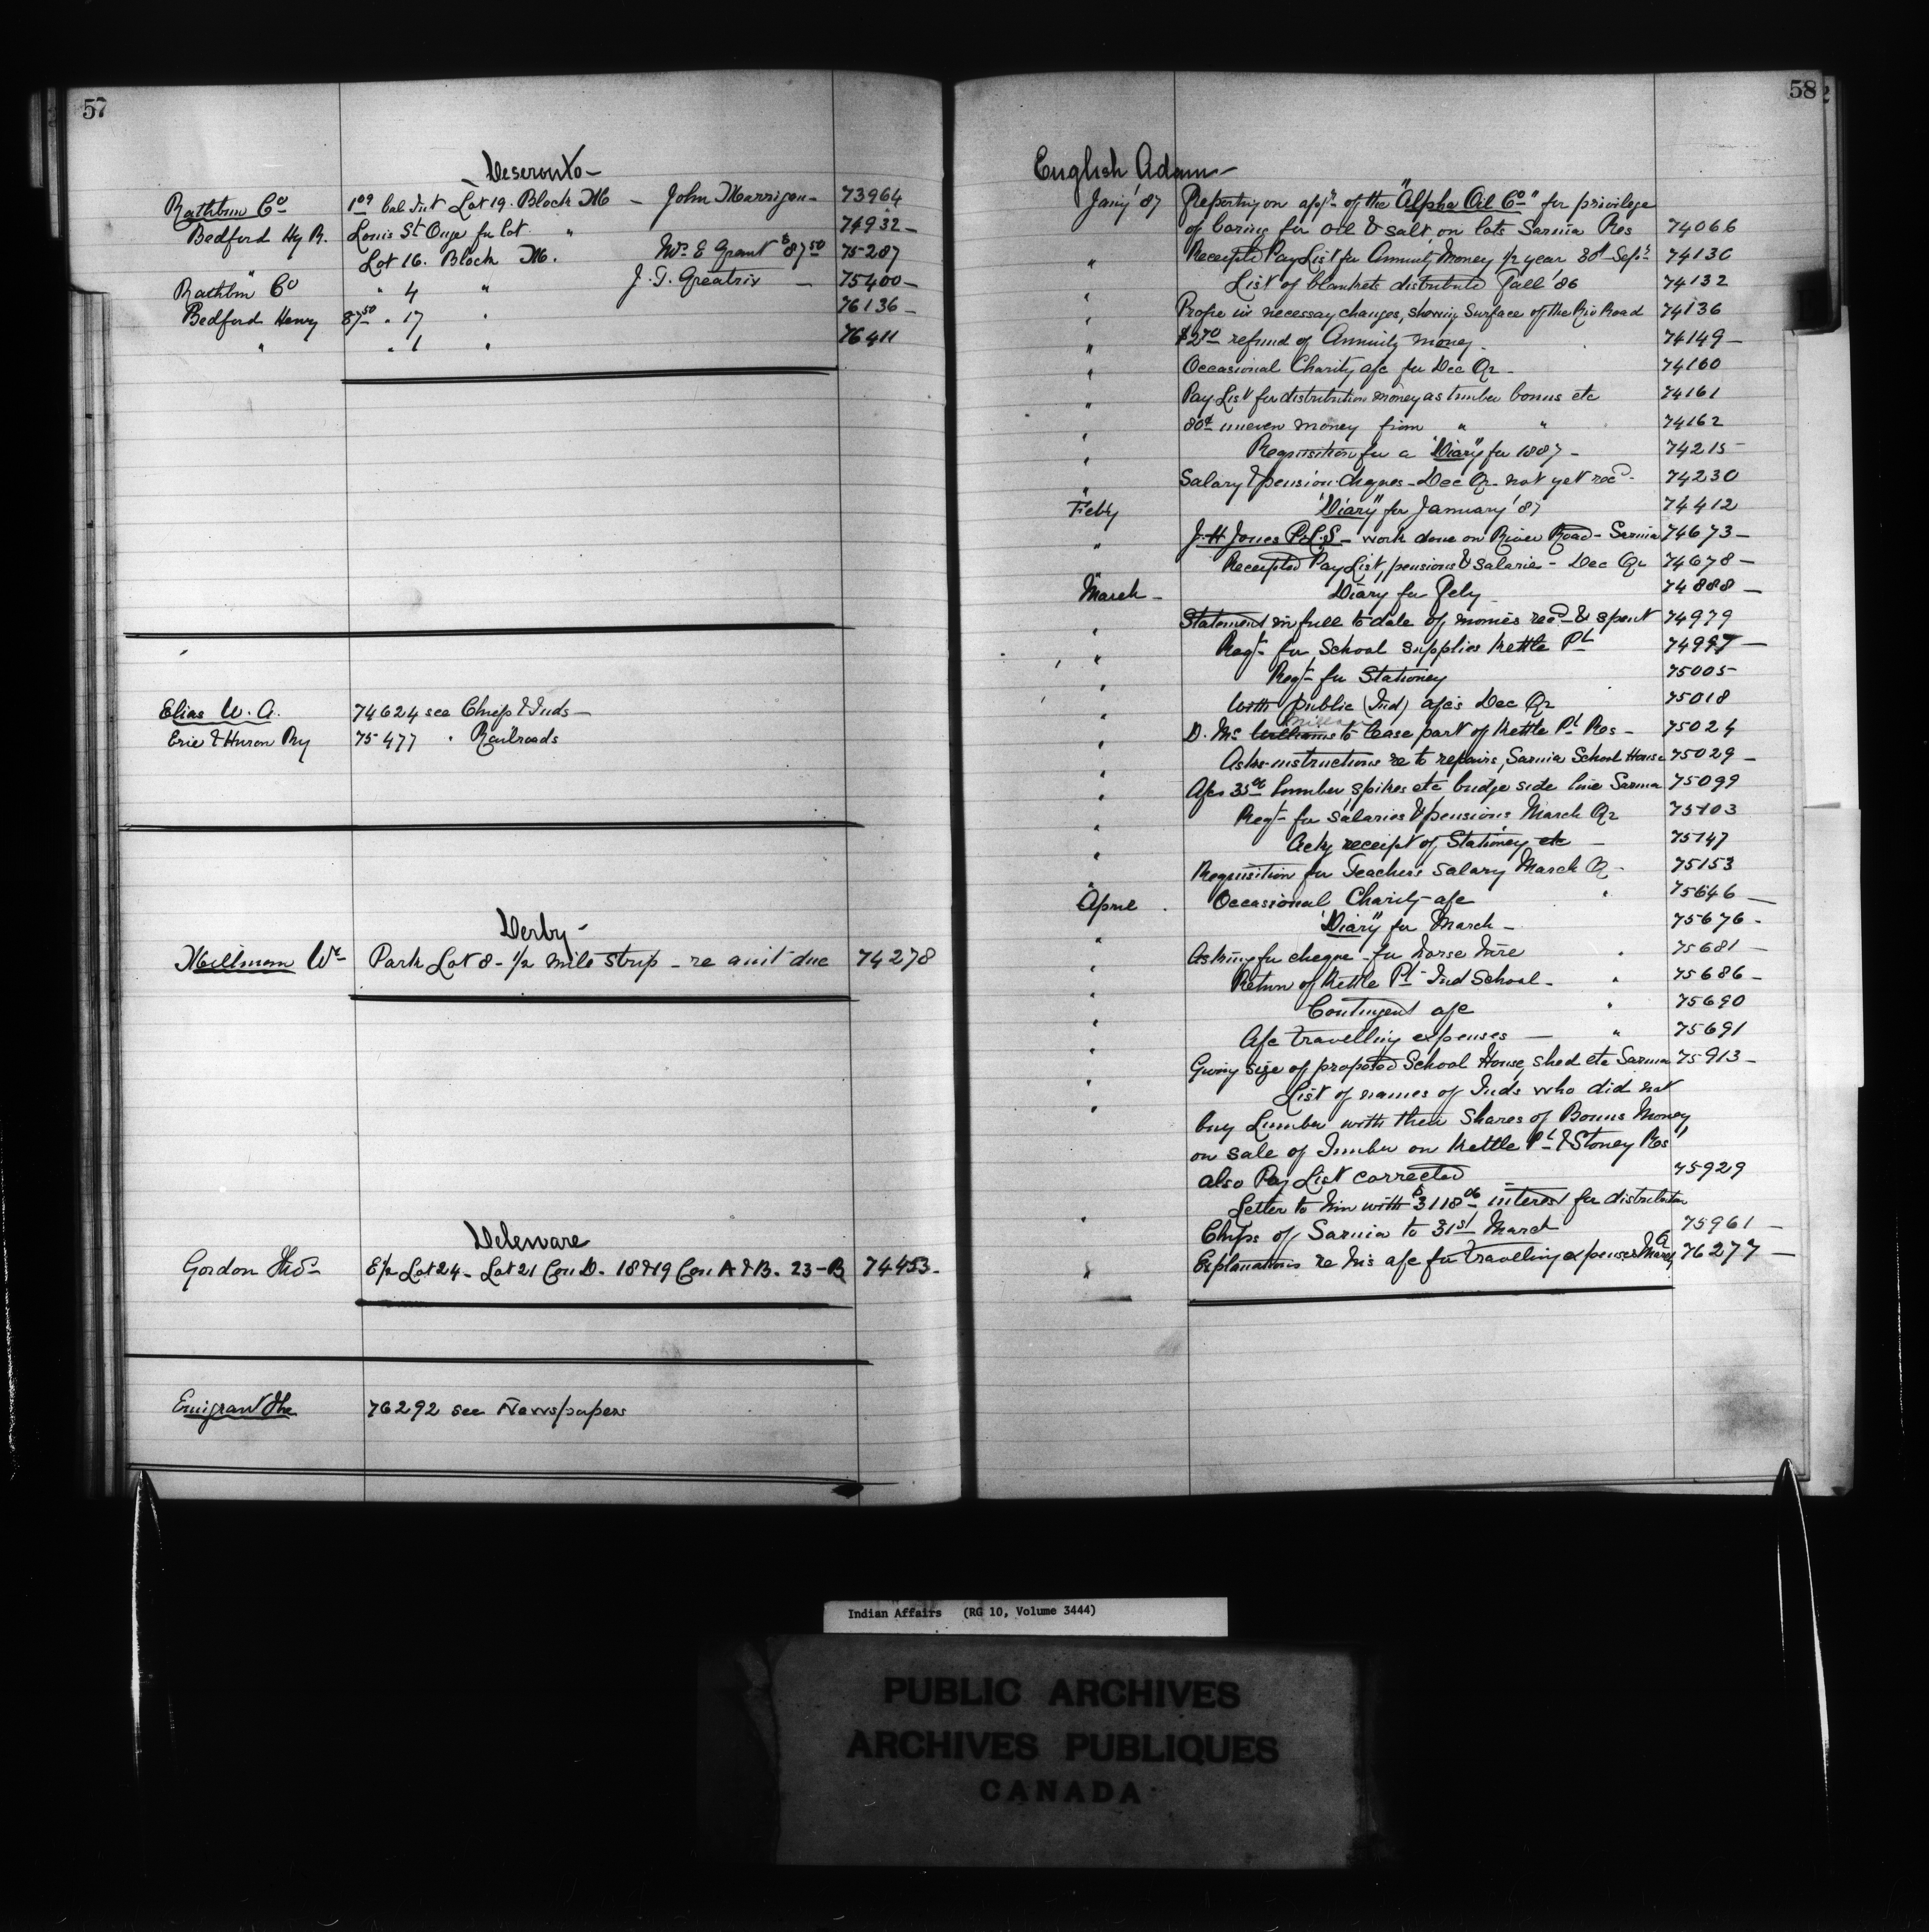 57
Deseronto -
Rathbun Co 1 09 bal Int Lot 19. Block M - John Marrigan - 73964
Bedford Hy R. Louis St Onge for lot " 74932 -
Lot 16. Block M. Mrs E Grant $87 50 75287
Rathbun Co " 4 " J. T. Greatrix - 75400 -
Bedford Henry 87 50 " 17 " 76136 -
" " 1 " 76411
Elias W. A. 74624 see Chief & Inds -
Erie & Huron Ry 75477 " Railroads
Derby -
Millman Wm Park Lot 8 - 1/2 mile strip - re amt due 74278
Deleware
Gordon Thos E/2 Lot 24 - Lot 21 Con D. 18 & 19 Con A & B. 23 - B 74453 -
Emigrant The 76292 see Newspapers
58
English Adam -
Jany '87 Reporting on appn of the "Alpha Oil Co" for privilege
of boring for oil & salt, on lots Sarnia Res 74066
" Receipted Pay List for Annuity Money 1/2 year 30th Sepr 74130
" List of blankets distributed Fall '86 74132
" necessary changes, shoring Surface of the Riv Road 74136
" $2 70 refund of Annuity money - 74149 -
" Occasional Charity a/c for Dec Qr - 74160
" Pay List for distribution money as timber bonus etc 74161
" 80¢ uneven money from " " 74162
" Requisition for a "Diary" for 1887 - 74215
" Salary & pension cheques - Dec Qr - not yet recd - 74230
Feby "Diary" for January '87 74412
" J. H Jones P.L.S - work done on River Road - Sarnia 74673 -
" Receipted Pay List, pensions & salarie - Dec Qr 74678 -
March - Diary for Feby 74888 -
" Statement in full to date of monies recd & spent 74979
" Reqt for School supplies Kettle Pt 74997 -
" Reqt for Stationey 75005
" With public (Ind) a/cs Dec Qr 75018
" D. Mc Williams to lease part of Kettle Pt Res - 75024
" Asks instructions re to repairs, Sarnia School House 75029 -
" A/cs 35 00 lumber spikes etc bridge side line Sarnia 75099
" Reqt for salaries & pensions March Qr 75103
" Ackg receipt of Stationey etc - 75147
" Requisition for Teachers salary March Q - 75153
April Occasional Charity a/c " 75646 -
" "Diary" for March - 75676 -
" Asking for cheque - for horse hire " 75681 -
" Return of Kettle Pt Ind School - " 75686 -
" Contingent a/c " 75690
" A/c travelling expenses - " 75691
" Giving size of proposed School House, shed etc Sarnia 75913 -
" List of names of Inds who did not
buy Lumber with their shares of Bonus Money
on sale of Timber on Kettle Pt & Stoney Res
also Pay List corrected 75929
" Letter to him with $3118 06 interest for distribution
Chips of Sarnia to 31st March 75961 -
" Explanations re his a/c for travelling expenses March Q 76277 -
Indian Affairs (RG 10, Volume 3444)
PUBLIC ARCHIVES
ARCHIVES PUBLIQUES
CANADA